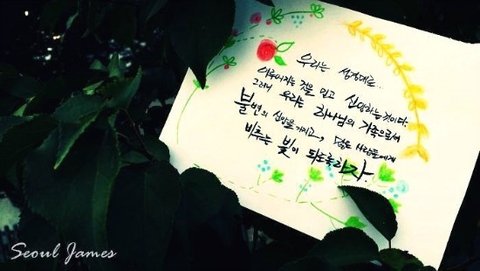 우리는 성경대로..
이루어지는 것을 믿고 신앙하는것이다.
그러니 우리는 하나님의 가족으로써
불변의 신앙을 가지고, 많은 사람들에게
비추는 빛이 되도록하자.
Seoul James